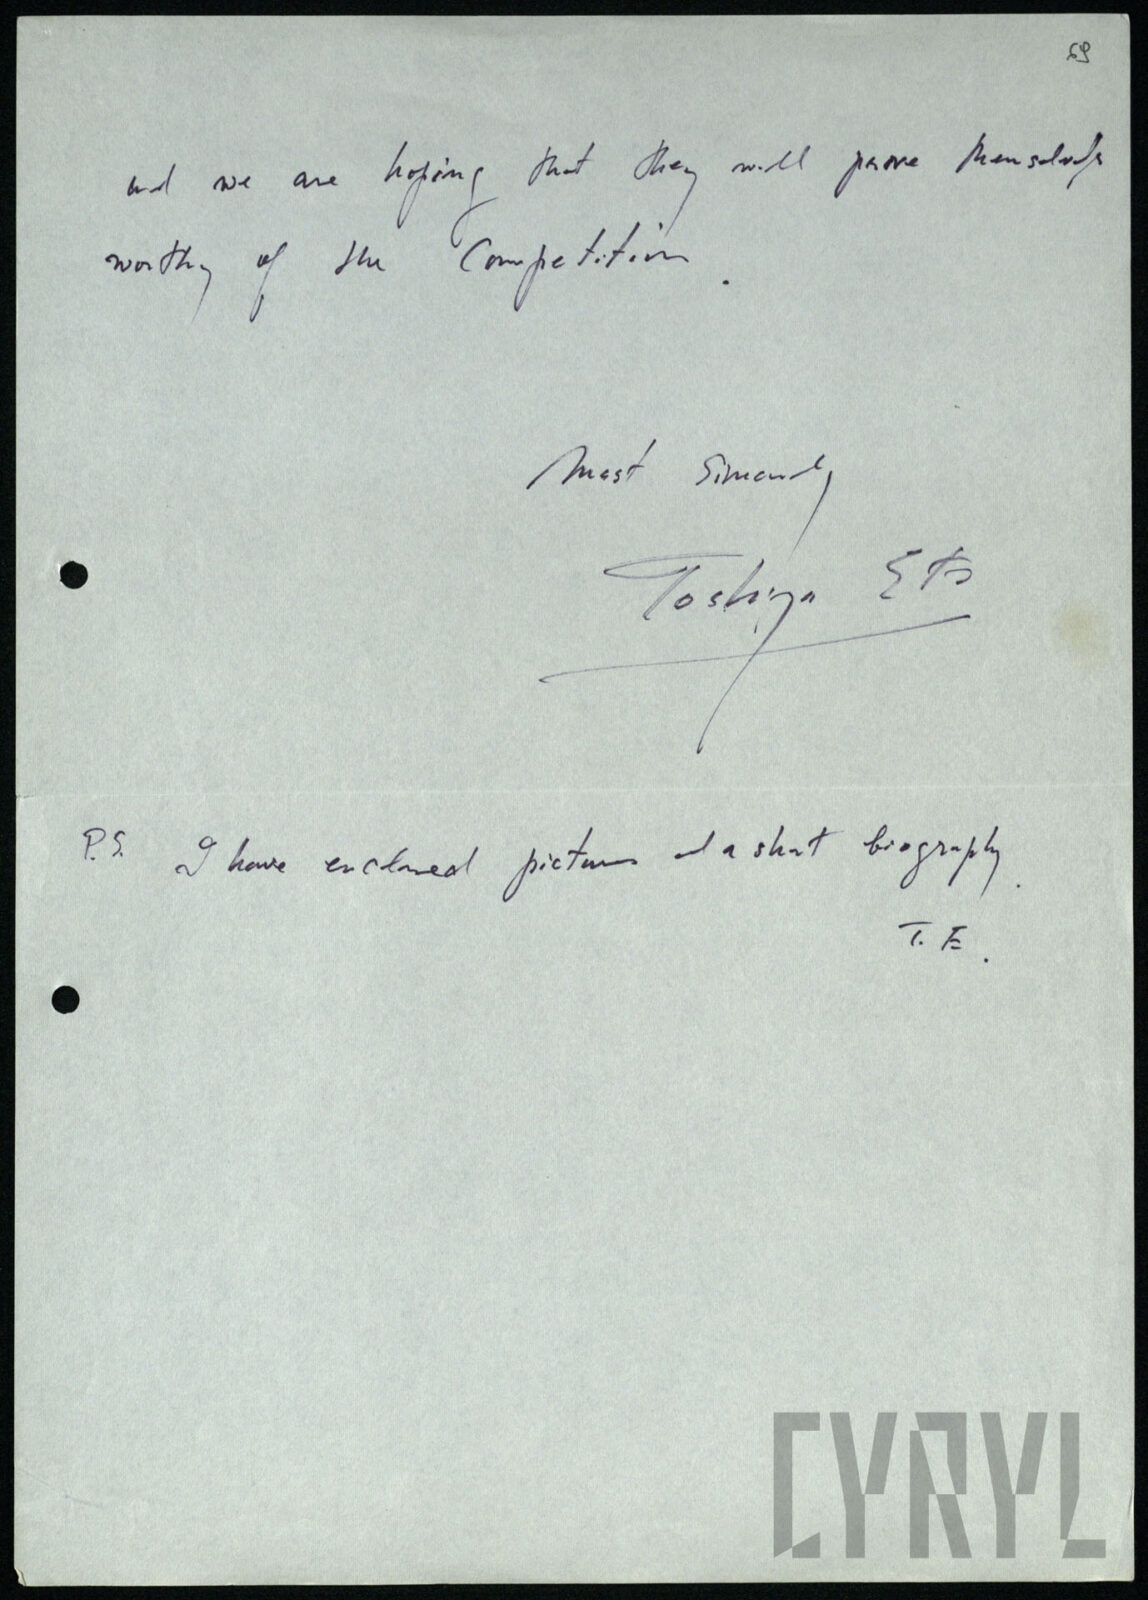 69
and we are hoping that they will prove themselves
worthy of the Competition.
Most Sincerely
Toshiya Eto
P.S. I have enclosed pictures and a short biography.
T. E.
CYRYL